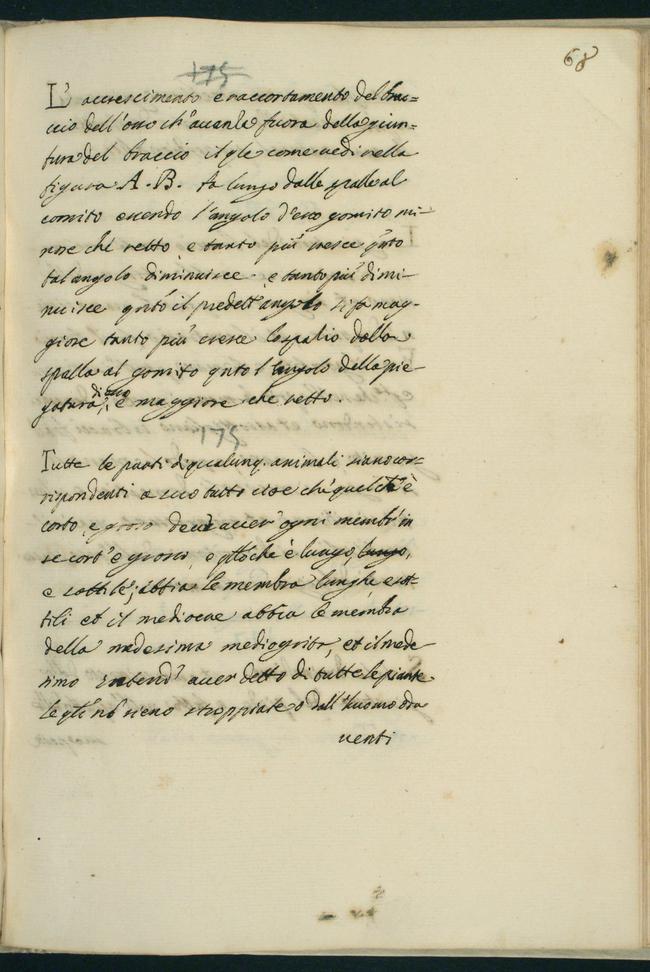 68
175
L' accrescimento e raccortamento del brac=
cio dell'osso ch' auanza fuora della giun=
tura del braccio il qle come uedi nella
figura A. B. fa lungo dalle spalle al
gomito auendo l'angolo d'esso gomito mi=
nore che retto, e tanto più cresce qnto
tal angolo diminuisce. e tanto più dimi=
nuisce qnto il predett' angolo si fa mag=
giore tanto più cresce lo spatio della
spalla al gomito qnto l'angolo della pie=
gatura di esso è maggiore che retto.
175
Tutte le parti di qualunq. animali siano cor=
rispondenti a suo tutto cioè che quel ch'è
corto, e grosso deue auer' ogni membr' in
se cort' e grosso, e qllo che è lungo, lungo,
e sottile, abbia le membra lunghe e sot=
tili et il mediocre abbia le membra
della medesima mediogrità, et il mede
simo intend' auer detto di tutte le piante
le qli nō sieno stroppiate o dall' huomo o da
uenti